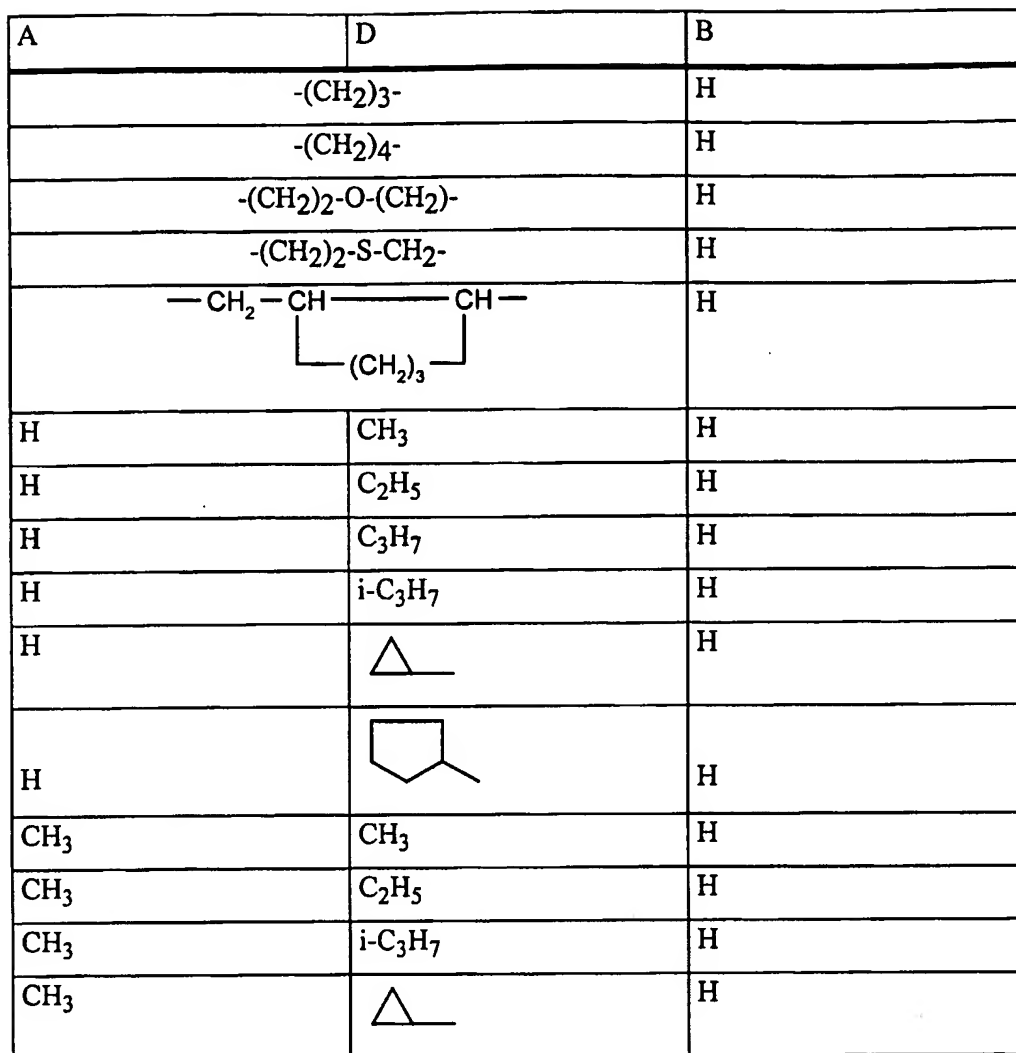 A D B
-(CH2)3- H
-(CH2)4- H
-(CH2)2-O-(CH2)- H
-(CH2)2-S-CH2- H
—CH2—CH—CH— H
(CH2)3
H CH3 H
H C2H5 H
H C3H7 H
H i-C3H7 H
H H
H H
CH3 CH3 H
CH3 C2H5 H
CH3 i-C3H7 H
CH3 H